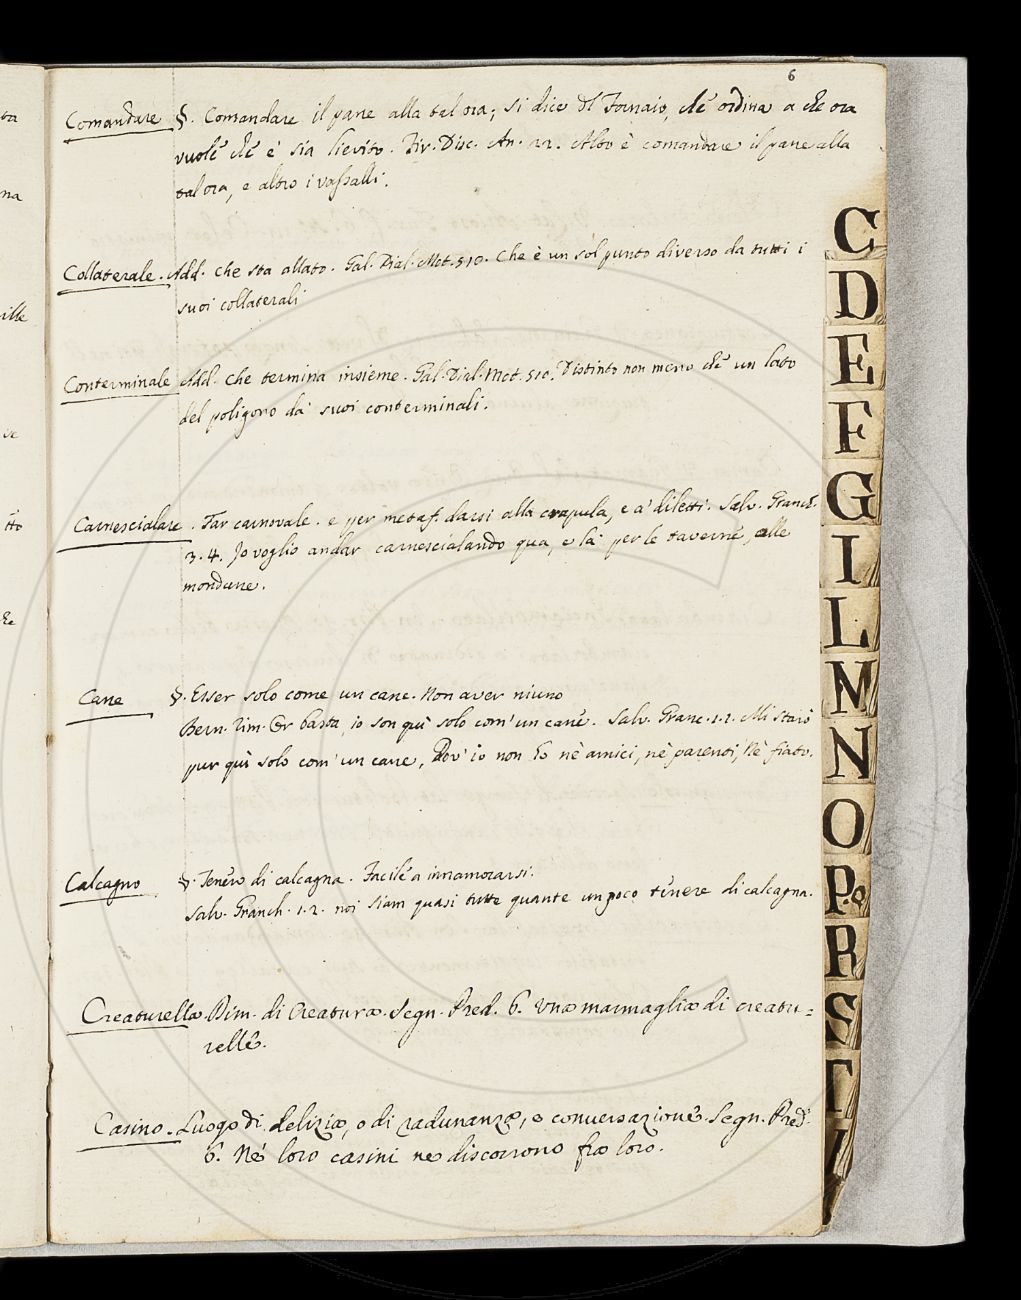 6
Comandare §. Comandare il pane alla tal ora; si dice dl Fornaio, che ordina a che ora
vuole che e' sia lievito. Riv. Disc. An. 22. Altro è comandare il pane alla
tal ora, e altro i vassalli.
Collaterale. Add. che sta allato. Gal. Dial. Mot. 510. Che è un sol punto diverso da tutti i
suoi collaterali
Conterminale Add. che termina insieme. Gal. Dial. Mot. 510. Distinto non meno che un lato
del poligono da' suoi conterminali.
Carnescialare. Far carnovale. e per metaf. darsi alla crapula, e a' diletti. Salv. Granch.
3. 4. Io voglio andar carnescialando qua, e là per le taverne, alle
mondane.
Cane §. Esser solo come un cane. Non aver niuno
Bern. Rim. Or basta, io son qui solo com' un cane. Salv. Granc. 1. 2. Mi starò
pur qui solo com' un cane, Dov' io non ho nè amici, nè parenti, Nè fiato.
Calcagno §. Tenero di calcagna. Facile a innamorarsi.
Salv. Granch. 1. 2. noi siam quasi tutte quante un poco tenere di calcagna.
Creaturella. Dim. di Creatura. Segn. Pred. 6. Una marmaglia di creatu=
relle.
Casino. Luogo di delizia, o di radunanza, e conversazione. Segn. Pred.
6. Nè loro casini ne discorrono fra loro.
C
D
E
F
G
I
L
M
N
O
P.Q
R
S
T
V